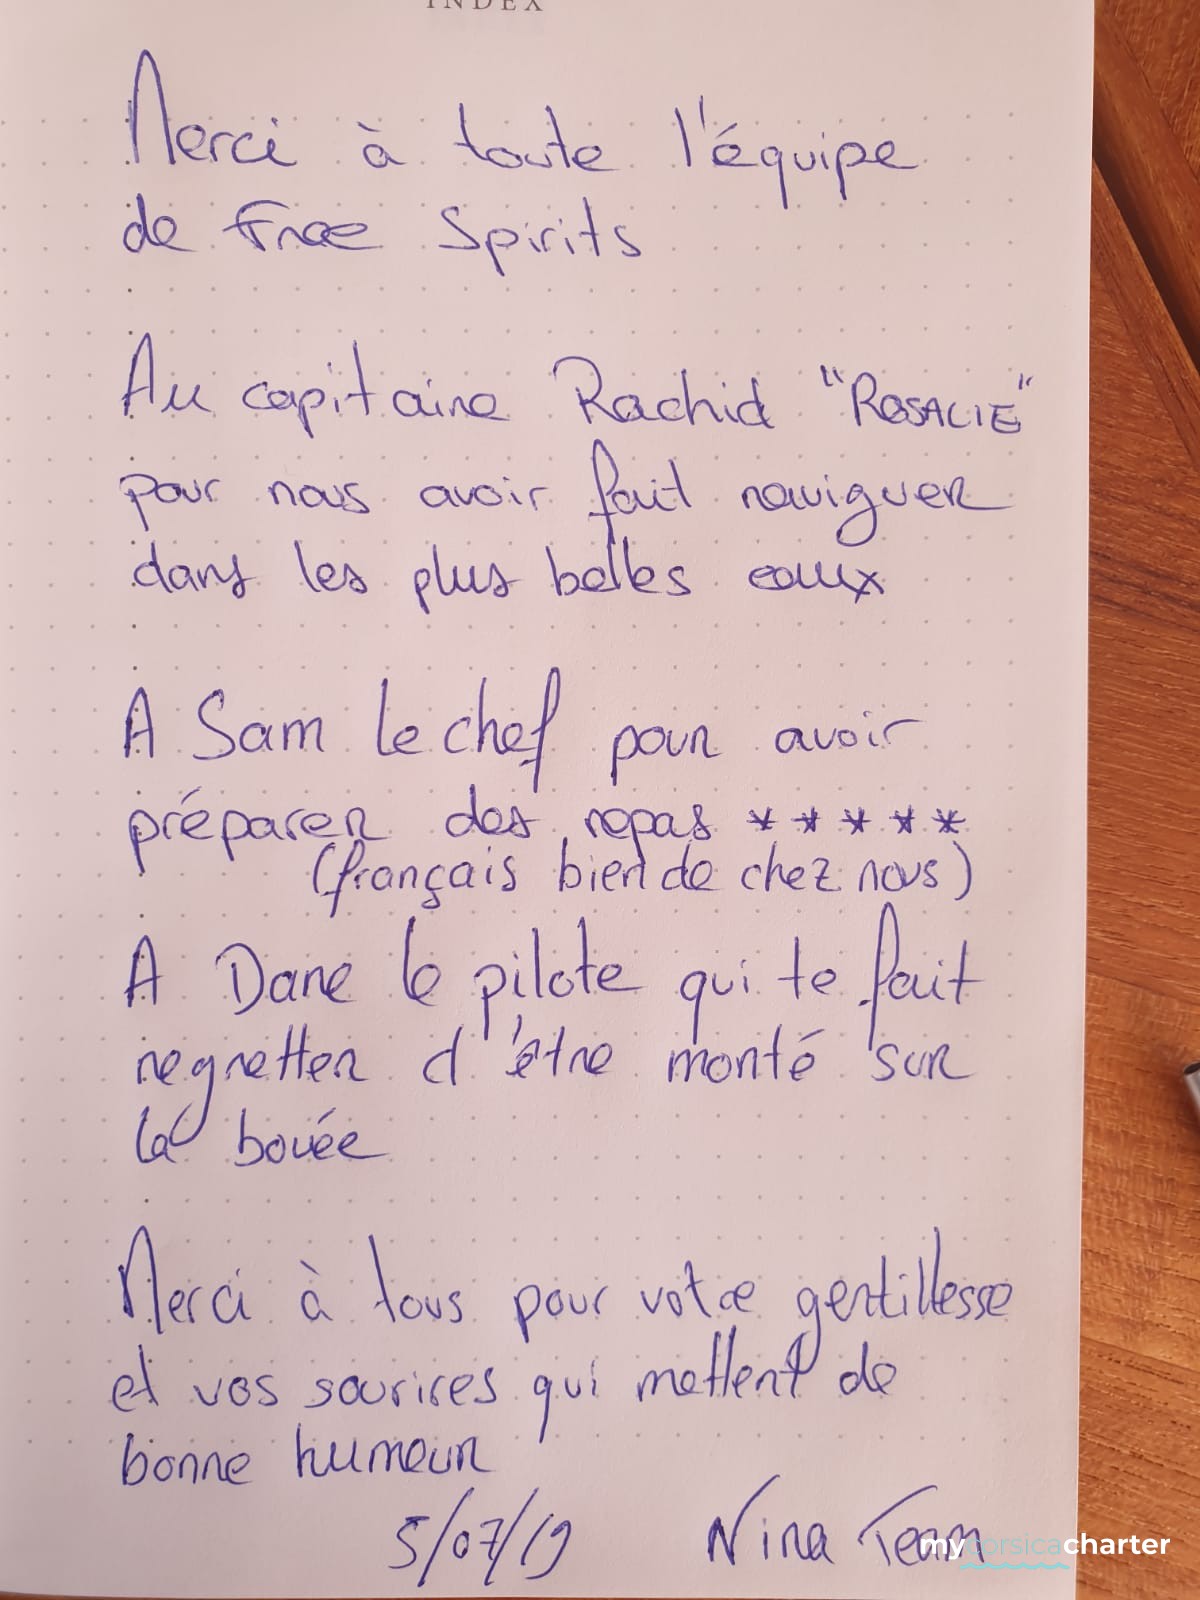 INDEX
Merci à toute l'équipe
de Free Spirits
Au capitaine Rachid "ROSALIE"
pour nous avoir fait naviguer
dans les plus belles eaux
A Sam le chef pour avoir
préparer des repas * * * * *
(français bien de chez nous)
A Dane le pilote qui te fait
regretter d'être monté sur
la bouée
Merci à tous pour votre gentillesse
et vos sourires qui mettent de
bonne humeur
5/07/19 Nina Team
mycorsicacharter